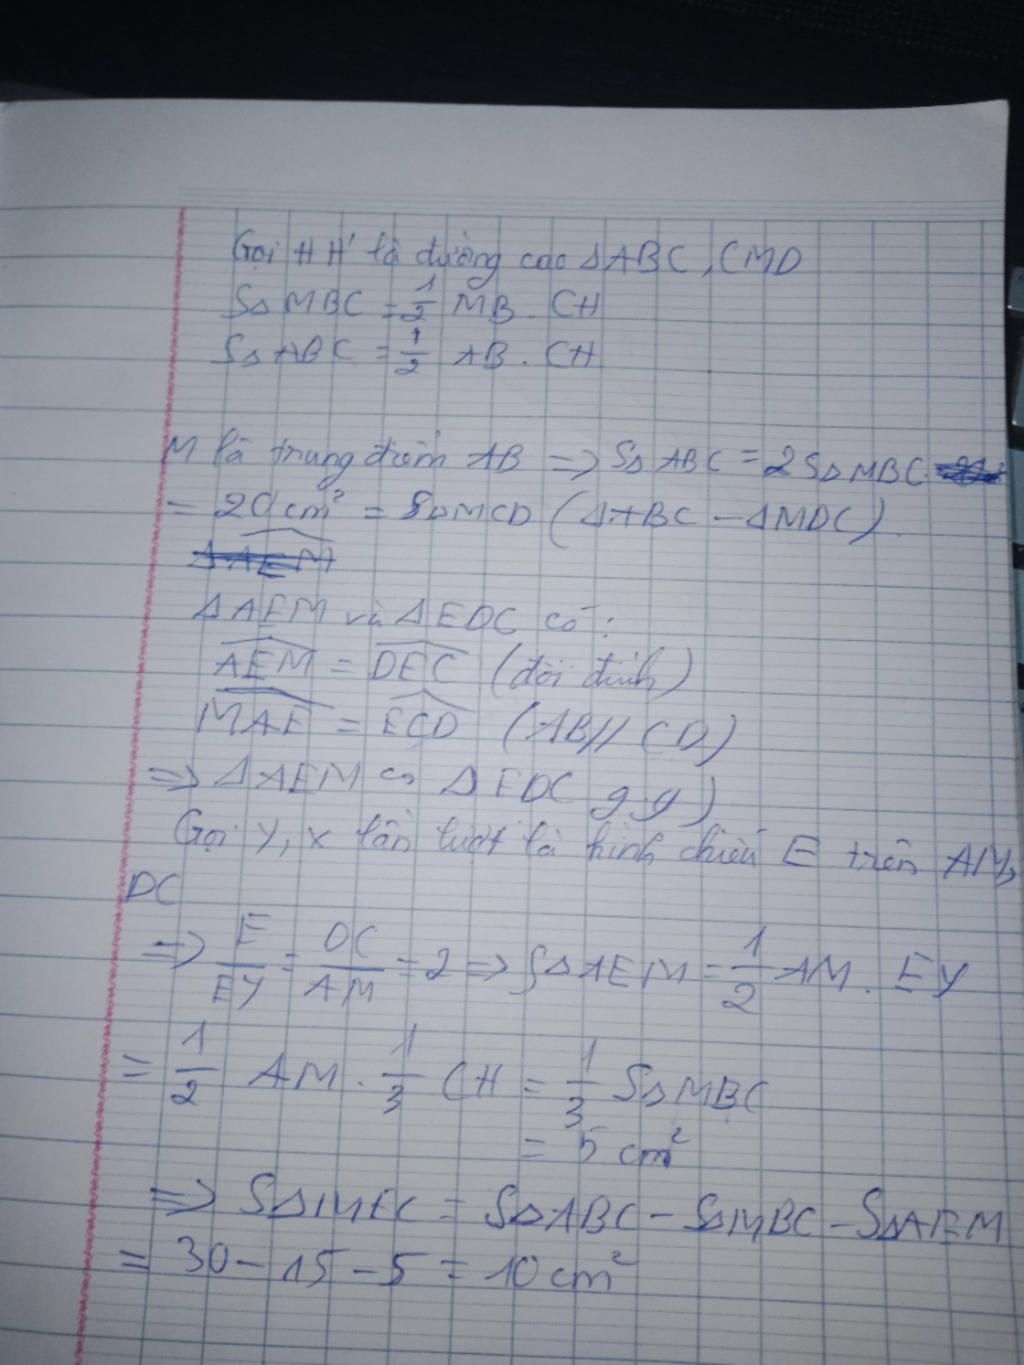 Gọi HH' là đường cao ΔABC, CMD
SΔ MBC = 1/2 MB. CH
SΔ ABC = 1/2 AB. CH
M là trung điểm AB => SΔ ABC = 2SΔMBC
= 20cm² = SΔMCD (ΔABC - ΔMDC)
ΔAEM và ΔEDC có:
AEM = DEC (đối đỉnh)
MAE = ECD (AB// CD)
=> ΔAEM ∽ ΔEDC g.g)
Gọi Y, X lần lượt là hình chiếu E trên AM,
DC
=> E/EY = DC/AM = 2 => SΔAEM = 1/2 AM. EY
= 1/2 AM. 1/3 CH = 1/3 SΔMBC
= 5 cm²
=> SΔMEC = SΔABC - SΔMBC - SΔAEM
= 30 - 15 - 5 = 10 cm²